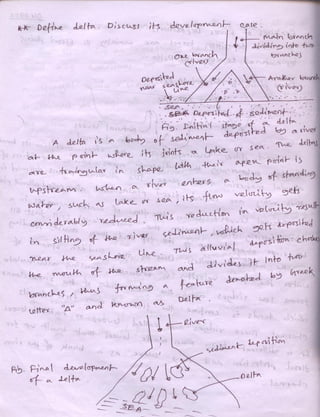 ** Define delta. Discuss its development case.
Main branch
dividing into two
branches
One branch
(river)
Deposited
near seashore
Line
Another branch
(river)
Sea
SEA Deposited of sediment
Fig. Initial stage of a delta
A delta is a body of sediment deposited by a river
at the point where its joints a Lake or sea. The deltas
are triangular in shape with their apex point is
upstream. When a river enters a body of standing
water, such as lake or sea, its flow velocity gets
considerably reduced. This reduction in velocity result
in silting of the river sediment, which gets deposited
near the seashore Line. This alluvial deposition
the mouth of the stream and divides it into two
branches, thus forming a feature denoted by Greek
letter "Δ" and known as Delta.
River
sediment deposition
Fig. Final development
of a delta
Delta
SEA